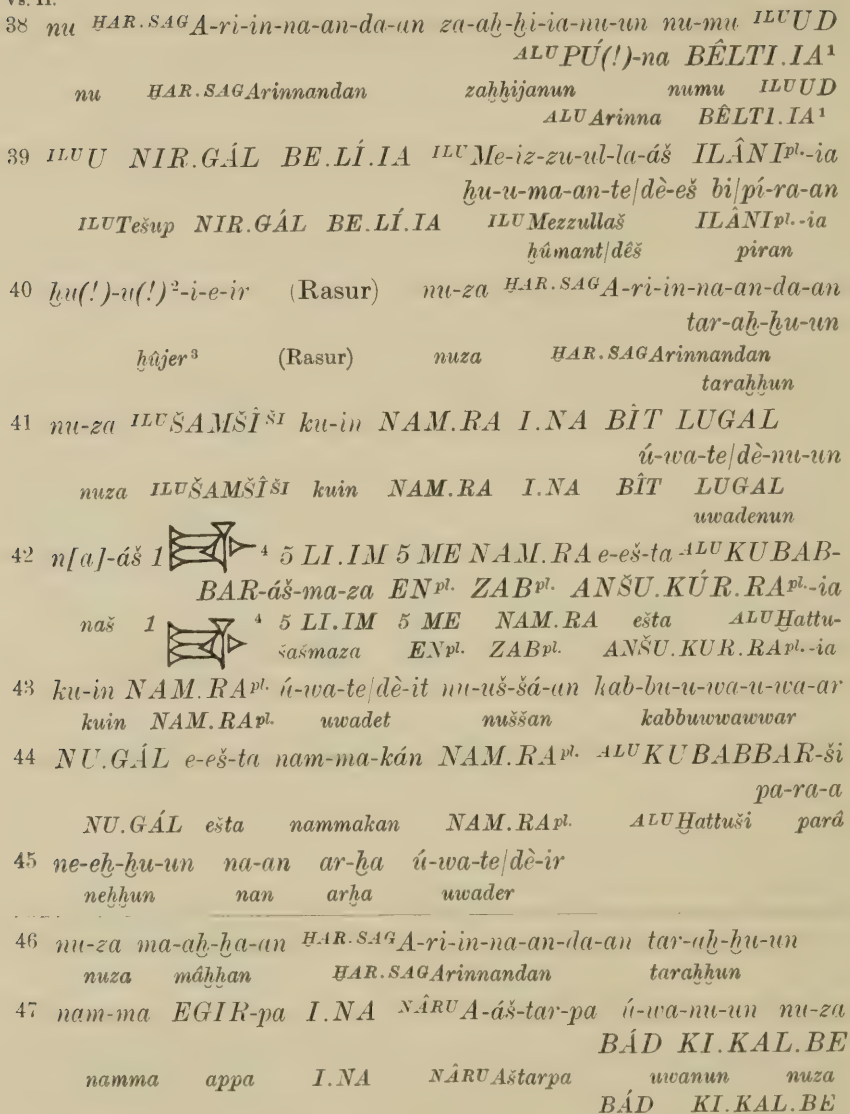 Vs. II.
38 nu ḪAR.SAGA-ri-in-na-an-da-an za-aḫ-ḫi-ia-nu-un nu-mu ILUUD
ALUPÚ(!)-na BÊLTI.IA¹
nu ḪAR.SAGArinnandan zaḫḫijanun numu ILUUD
ALUArinna BÊLTI.IA¹
39 ILUU NIR.GÁL BE.LÍ.IA ILUMe-iz-zu-ul-la-áš ILÂNIpl.-ia
ḫu-u-ma-an-te/dè-eš bi/pí-ra-an
ILUTešup NIR.GÁL BE.LÍ.IA ILUMezzullaš ILÂNIpl.-ia
ḫûmant/dêš piran
40 ḫu(!)-u(!)²-i-e-ir (Rasur) nu-za ḪAR.SAGA-ri-in-na-an-da-an
tar-aḫ-ḫu-un
ḫûjer³ (Rasur) nuza ḪAR.SAGArinnandan
taraḫḫun
41 nu-za ILUŠAMŠÎŠI ku-in NAM.RA I.NA BÎT LUGAL
ú-wa-te/dè-nu-un
nuza ILUŠAMŠÎŠI kuin NAM.RA I.NA BÎT LUGAL
uwadenun
42 n[a]-áš 1 ⁴ 5 LI.IM 5 ME NAM.RA e-eš-ta ALUKUBAB-
BAR-áš-ma-za ENpl. ZABpl. ANŠU.KÚR.RApl.-ia
naš 1 ⁴ 5 LI.IM 5 ME NAM.RA ešta ALUḪattu-
šašmaza ENpl. ZABpl. ANŠU.KUR.RApl.-ia
43 ku-in NAM.RApl. ú-wa-te/dè-it nu-uš-šá-an kab-bu-u-wa-u-wa-ar
kuin NAM.RApl. uwadet nuššan kabbuwwawwar
44 NU.GÁL e-eš-ta nam-ma-kán NAM.RApl. ALUKUBABBAR-ši
pa-ra-a
NU.GÁL ešta nammakan NAM.RApl. ALUḪattuši parâ
45 ne-eḫ-ḫu-un na-an ar-ḫa ú-wa-te/dè-ir
neḫḫun nan arḫa uwader
46 nu-za ma-aḫ-ḫa-an ḪAR.SAGA-ri-in-na-an-da-an tar-aḫ-ḫu-un
nuza mâḫḫan ḪAR.SAGArinnandan taraḫḫun
47 nam-ma EGIR-pa I.NA NÂRUA-áš-tar-pa ú-wa-nu-un nu-za
BÁD KI.KAL.BE
namma appa I.NA NÂRUAštarpa uwanun nuza
BÁD KI.KAL.BE